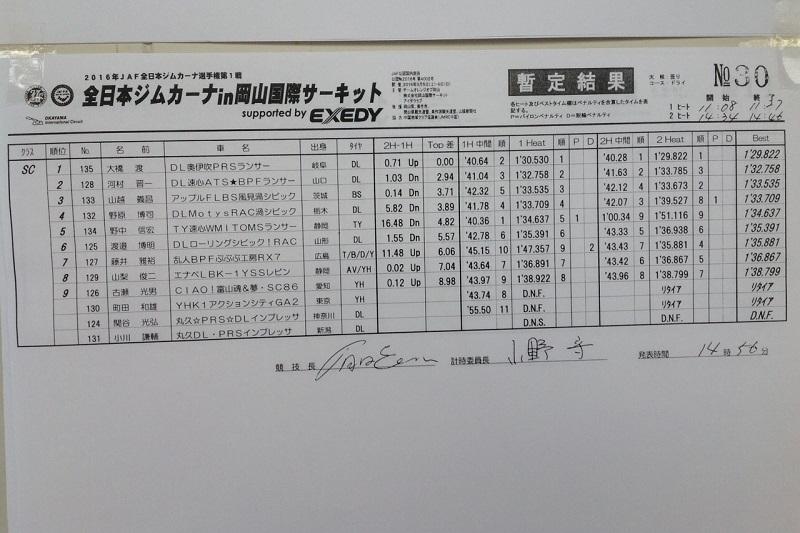 2016年JAF全日本ジムカーナ選手権第1戦
全日本ジムカーナin岡山国際サーキット
supported by EXEDY
OKAYAMA International Circuit
暫定結果
天候:曇り
コース:ドライ
各ヒート及びベストタイム欄はペナルティを合算したタイムを表記する。
P=パイロンペナルティ D=脱輪ペナルティ
No 30
開始 終了
1ヒート 11:08 11:37
2ヒート 14:34 14:46
クラス 順位 No. 名前 車名 出身 タイヤ 2H-1H Top差 1H中間 順 1 Heat 順 P D 2H中間 順 2 Heat 順 P D Best
SC 1 135 大橋 渡 DL奥伊吹PRSランサー 岐阜 DL 0.71 Up 0.00 '40.64 2 1'30.530 1 '40.28 1 1'29.822 1 1'29.822
2 128 河村 晋一 DL速心ATS★BPFランサー 山口 DL 1.03 Dn 2.94 '41.04 3 1'32.758 2 '41.63 2 1'33.785 3 1'32.758
3 133 山越 義昌 アップルFLBS風見渦シビック 茨城 BS 0.14 Dn 3.71 '42.32 5 1'33.535 3 '42.12 4 1'33.673 2 1'33.535
4 132 野原 博司 DLMotysRAC渦シビック 栃木 DL 5.82 Dn 3.89 '41.78 4 1'33.709 4 '42.07 3 1'39.527 8 1 1'33.709
5 134 野中 信宏 TY速心WMITOMSランサー 静岡 TY 16.48 Dn 4.82 '40.36 1 1'34.637 5 1 1'00.34 9 1'51.116 9 1'34.637
6 125 渡道 博明 DLローリングシビック!RAC 山形 DL 1.55 Dn 5.57 '42.78 6 1'35.391 6 '43.33 5 1'36.938 6 1'35.391
7 127 藤井 雅裕 乱人BPFぷぷぷ工房RX7 広島 T/B/D/Y 11.48 Up 6.06 '45.15 10 1'47.359 9 2 '43.43 7 1'35.881 4 1'35.881
8 129 山梨 俊二 エナペLBK-1YSSレビン 静岡 AV/YH 0.02 Up 7.04 '43.64 7 1'36.891 7 '43.42 6 1'36.867 5 1'36.867
9 126 古瀬 光男 CIAO!富山魂&夢・SC86 愛知 YH 0.12 Up 8.98 '43.97 9 1'38.922 8 '43.96 8 1'38.799 7 1'38.799
130 町田 和雄 YHK1アクションシティGA2 東京 YH '43.74 8 D.N.F. リタイア リタイア
124 関谷 光弘 丸久☆PRS☆DLインプレッサ 神奈川 DL '55.50 11 D.N.F. リタイア リタイア
131 小川 謙輔 丸久DL・PRSインプレッサ 新潟 DL D.N.S. D.N.F. D.N.F.
競技長 計時委員長 小野 守 発表時間 14時56分